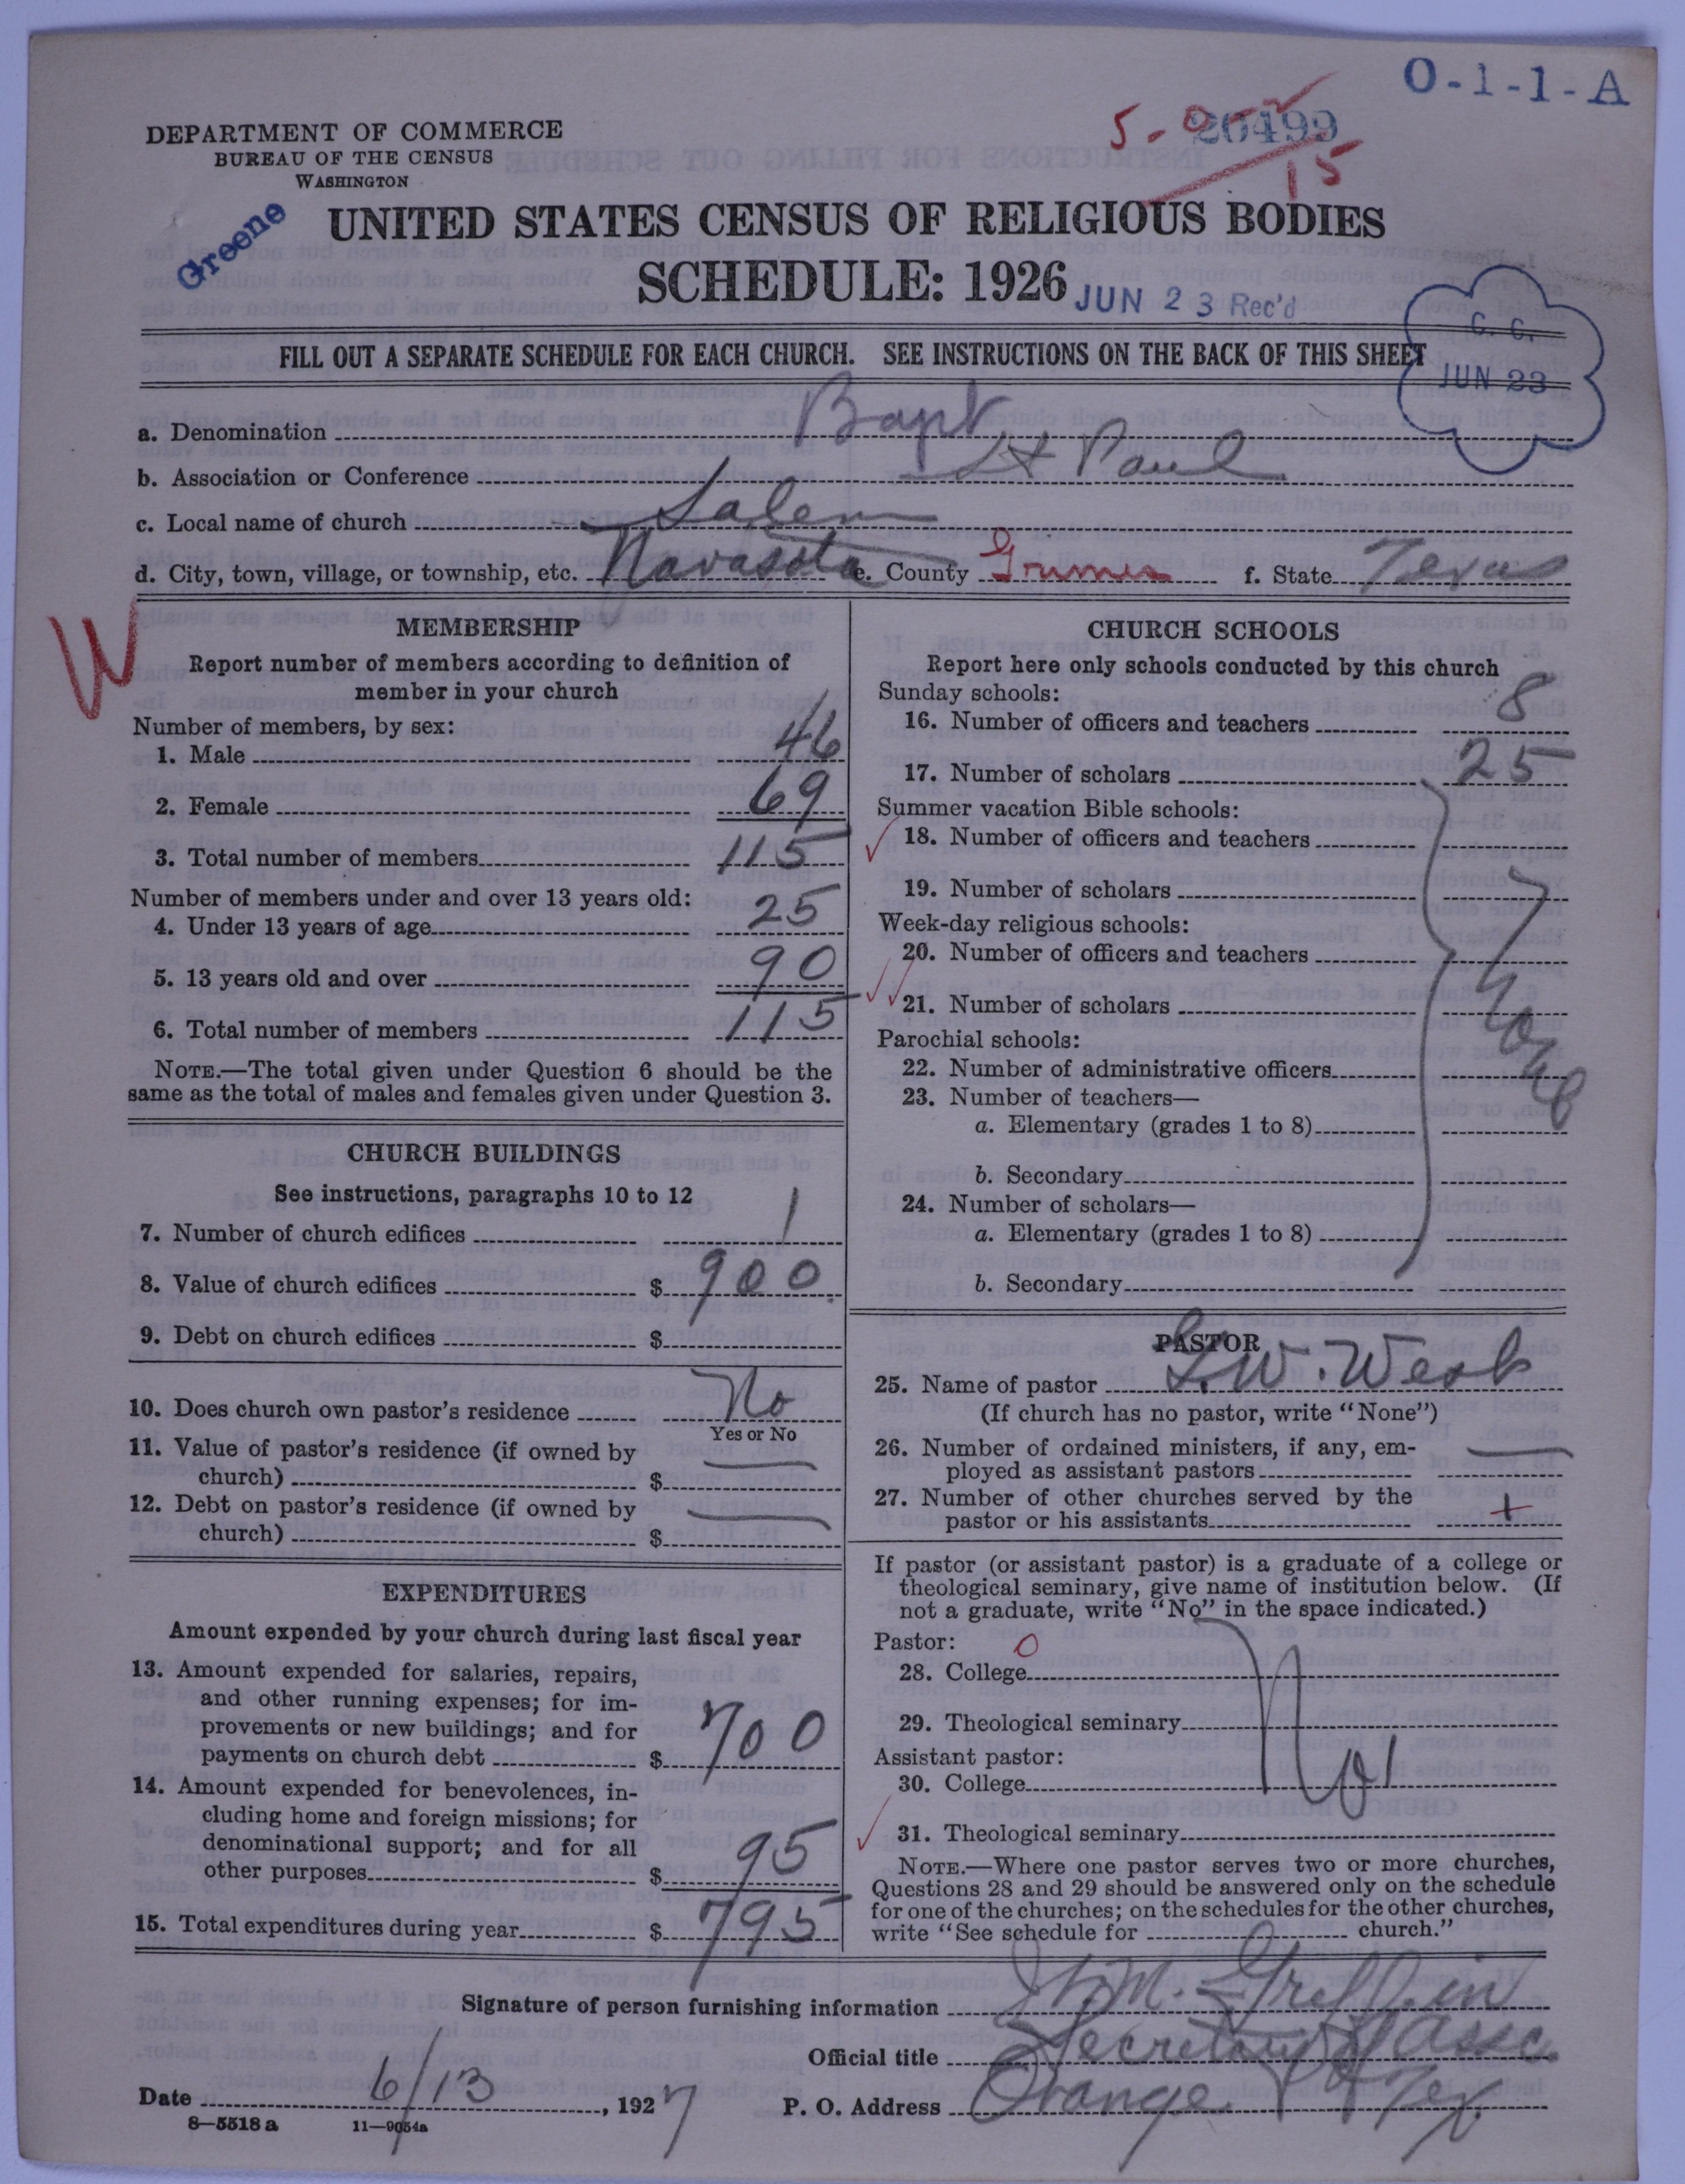 O-1-1-A
DEPARTMENT OF COMMERCE
BUREAU OF THE CENSUS
WASHINGTON
26499
15
Greene
UNITED STATES CENSUS OF RELIGIOUS BODIES
SCHEDULE: 1926
JUN 23 Rec'd
C. C.
JUN 23
FILL OUT A SEPARATE SCHEDULE FOR EACH CHURCH. SEE INSTRUCTIONS ON THE BACK OF THIS SHEET
a. Denomination Bapt
b. Association or Conference St Paul
c. Local name of church Salem
d. City, town, village, or township, etc. Navasota e. County Grimes f. State Texas
W
MEMBERSHIP
Report number of members according to definition of
member in your church
Number of members, by sex:
1. Male 46
2. Female 69
3. Total number of members 115
Number of members under and over 13 years old:
4. Under 13 years of age 25
5. 13 years old and over 90
6. Total number of members 115
NOTE.—The total given under Question 6 should be the
same as the total of males and females given under Question 3.
CHURCH BUILDINGS
See instructions, paragraphs 10 to 12
7. Number of church edifices 1
8. Value of church edifices $ 900
9. Debt on church edifices $
10. Does church own pastor's residence No
Yes or No
11. Value of pastor's residence (if owned by
church) $
12. Debt on pastor's residence (if owned by
church) $
EXPENDITURES
Amount expended by your church during last fiscal year
13. Amount expended for salaries, repairs,
and other running expenses; for im-
provements or new buildings; and for
payments on church debt $ 700
14. Amount expended for benevolences, in-
cluding home and foreign missions; for
denominational support; and for all
other purposes $ 95
15. Total expenditures during year $ 795
CHURCH SCHOOLS
Report here only schools conducted by this church
Sunday schools:
16. Number of officers and teachers 8
17. Number of scholars 25
Summer vacation Bible schools:
18. Number of officers and teachers
19. Number of scholars
Week-day religious schools:
20. Number of officers and teachers
21. Number of scholars
None
Parochial schools:
22. Number of administrative officers
23. Number of teachers—
a. Elementary (grades 1 to 8)
b. Secondary
24. Number of scholars—
a. Elementary (grades 1 to 8)
b. Secondary
PASTOR
25. Name of pastor W.
(If church has no pastor, write "None")
26. Number of ordained ministers, if any, em-
ployed as assistant pastors
27. Number of other churches served by the
pastor or his assistants +
If pastor (or assistant pastor) is a graduate of a college or
theological seminary, give name of institution below. (If
not a graduate, write "No" in the space indicated.)
Pastor: 0
28. College
29. Theological seminary
Assistant pastor: No
30. College
31. Theological seminary
NOTE.—Where one pastor serves two or more churches,
Questions 28 and 29 should be answered only on the schedule
for one of the churches; on the schedules for the other churches,
write "See schedule for church."
Signature of person furnishing information M. Greffin
Official title Secretary Assc.
Date 6/13, 1927 P. O. Address Orange Tex.
8—5518 a 11—9054a